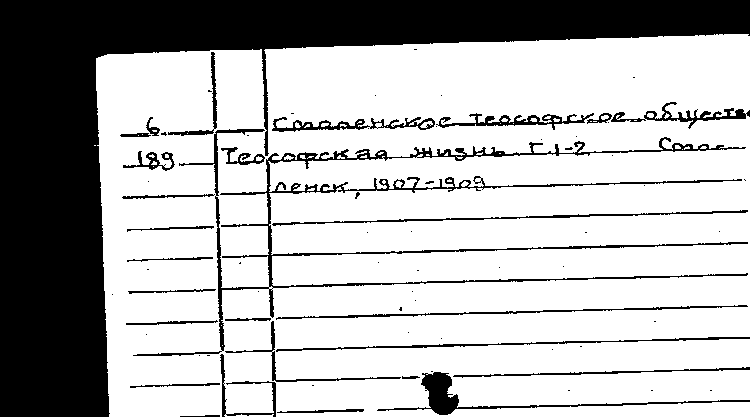 6 Смоленское Теософское общество
189 Теософская жизнь Г.1-2 Смо-
ленск, 1907-1909